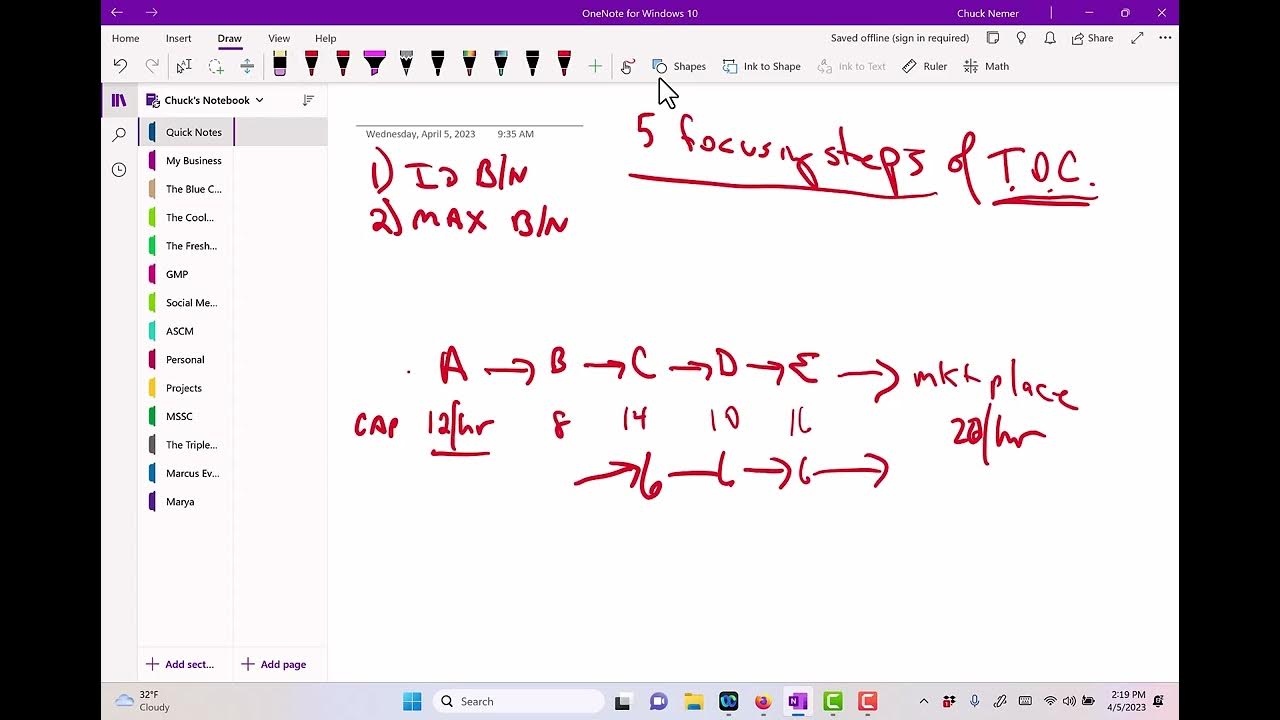 OneNote for Windows 10
Chuck Nemer
Home Insert Draw View Help
Saved offline (sign in required)
Share
Shapes
Ink to Shape
Ink to Text
Ruler
Math
Chuck's Notebook
Quick Notes
My Business
The Blue C...
The Cool...
The Fresh...
GMP
Social Me...
ASCM
Personal
Projects
MSSC
The Triple...
Marcus Ev...
Marya
Add sect...
Add page
Wednesday, April 5, 2023 9:35 AM
5 focusing steps of T.O.C.
1) ID B/N
2) MAX B/N
A → B → C → D → E → mkt place
CAP 12/hr 8 14 10 16 20/hr
→ 6 — 6 → 6 →
32°F
Cloudy
Search
2:19 PM
4/5/2023